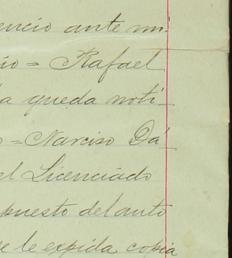 encio ante mi
io = Rafael
la queda noti-
o = Narciso Dá-
el Licenciado
puesto del auto
ue le expida copia